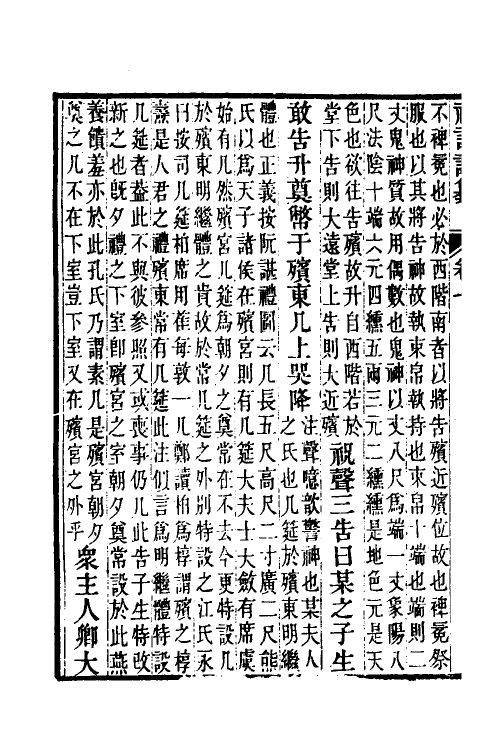 不裨冕也必於西階南者以將告殯近殯位故也裨冕祭
服也以其將告神故執束帛執持也束帛十端也端則二
丈鬼神質故用偶數也鬼神以丈八尺爲端一丈象陽八
尺法陰十端六元四纁五兩三元二纁纁是地色元是天
色也欲往告殯故升自西階若於
堂下告則大遠堂上告則大近殯祝聲三告曰某之子生
敢告升奠幣于殯東几上哭降注聲噫歆警神也某夫人
之氏也几筵於殯東明繼
體也正義按阮諶禮圖云几長五尺高尺二寸廣二尺熊
氏以爲天子諸侯在殯宮則有几筵大夫士大斂有席虞
始有几然殯宮几筵爲朝夕之奠常在不去今更特設几
於殯東明繼體之貴故於常几筵之外別特設之江氏永
曰按司几筵柏席用萑每敦一几鄭讀柏爲椁謂殯之椁
燾是人君之禮殯東常有几筵此注似言爲明繼體特設
几筵者葢此不與彼參照又或喪事仍几此告子生特改
新之也旣夕禮之下室卽殯宮之室朝夕奠常設於此燕
養饋羞亦於此孔氏乃謂素几是殯宮朝夕
奠之几不在下室豈下室又在殯宮之外乎衆主人卿大